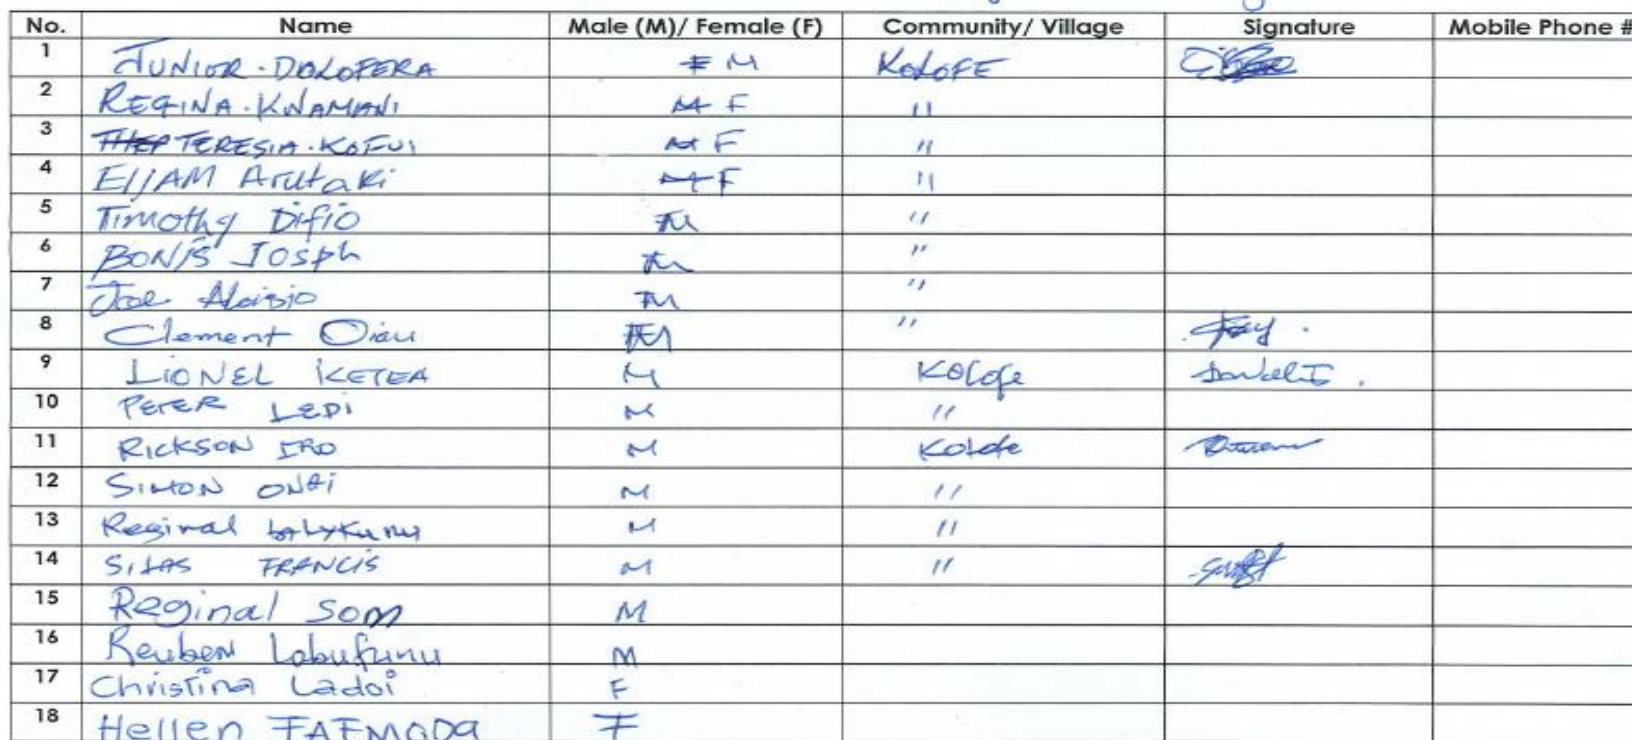 No. Name Male (M)/ Female (F) Community/ Village Signature Mobile Phone #
1 JUNIOR.DOLOFERA F M KOLOFE
2 REGINA.KWAMANI M F "
3 THER TERESIA.KOFUI M F "
4 EllAM Arutaki M F "
5 Timothy Difio M "
6 BONIS Josph M "
7 Joe Aloisio M "
8 Clement Oiau M "
9 LIONEL KETEA M Kolofe
10 PETER LEDI M "
11 RICKSON IRO M Kolofe
12 SIMON M "
13 Reginal M "
14 SILAS FRANCIS M "
15 Reginal Som M
16 Reuben Labufunu M
17 Christina Ladoi F
18 Hellen FAFMODA F